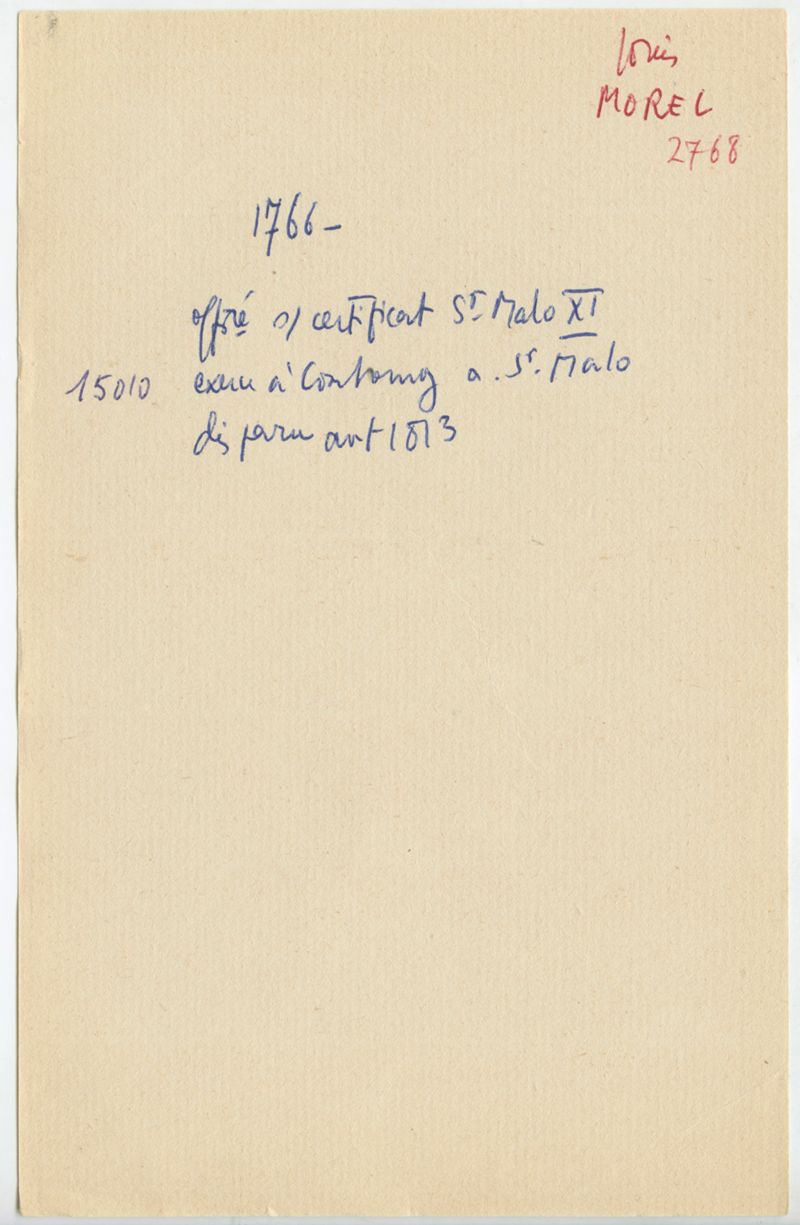 Louis
MOREL
2768
1766 –
offre s/ certificat St Malo XI
15010 exerce à Combourg a. St. Malo
disparu avt 1813